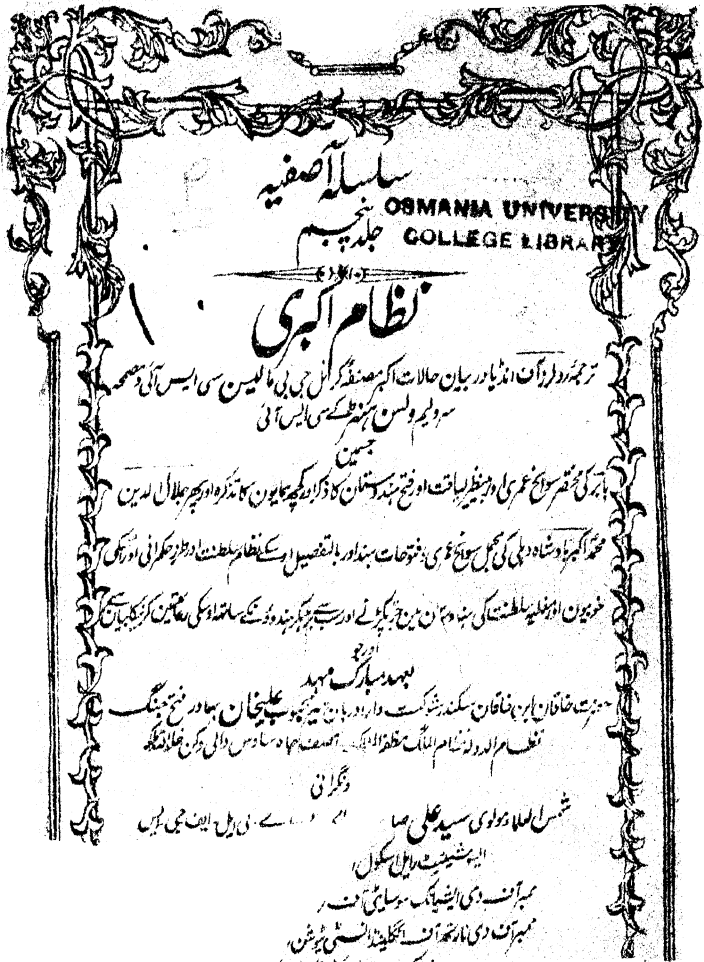 سلسلہ آصفیہ
OSMANIA UNIVERSITY
جلد پنجم
COLLEGE LIBRARY
نظام اکبری
ترجمہ رولرز آف انڈیا در بیان حالات اکبر مصنفہ کرنل جی بی مالیسن سی ایس آئی و مصححہ
سر ولیم ولسن ہنٹر کے سی ایس آئی
جسمین
بابر کی مختصر سوانح عمری اور بینظیر لیاقت اور فتح ہندوستان کا ذکر اور کچھ ہمایون کا تذکرہ اور پھر جلال الدین
محمد اکبر بادشاہ دہلی کی مجمل سوانح عمری فتوحات ہند اور بالتفصیل اسکے نظام سلطنت اور طرز حکمرانی اور اسکی
خوبیون اور مغلیہ سلطنت کی ہندوستان مین جڑ پکڑنے اور سب سے بڑھکر ہندوؤن کے ساتھ اوسکی رعایتین کرنیکا بیان ہے
اور جو
بعہد مبارک مہد
حضرت خاقان ابن خاقان سکندر شوکت دارا دربان میر محبوب علیخان بہادر فتح جنگ
نظام الدولہ نظام الملک آصف جاہ سادس والی دکن
و نگرانی
شمس العلما مولوی سید علی صا
بی ایل۔ ایف جی ایس
ایسوشیئیٹ رایل اسکول
ممبر آف دی ایشیاٹک سوسایٹی آف
ممبر آف دی نارتھ آف انگلینڈ انسٹی ٹیوشن